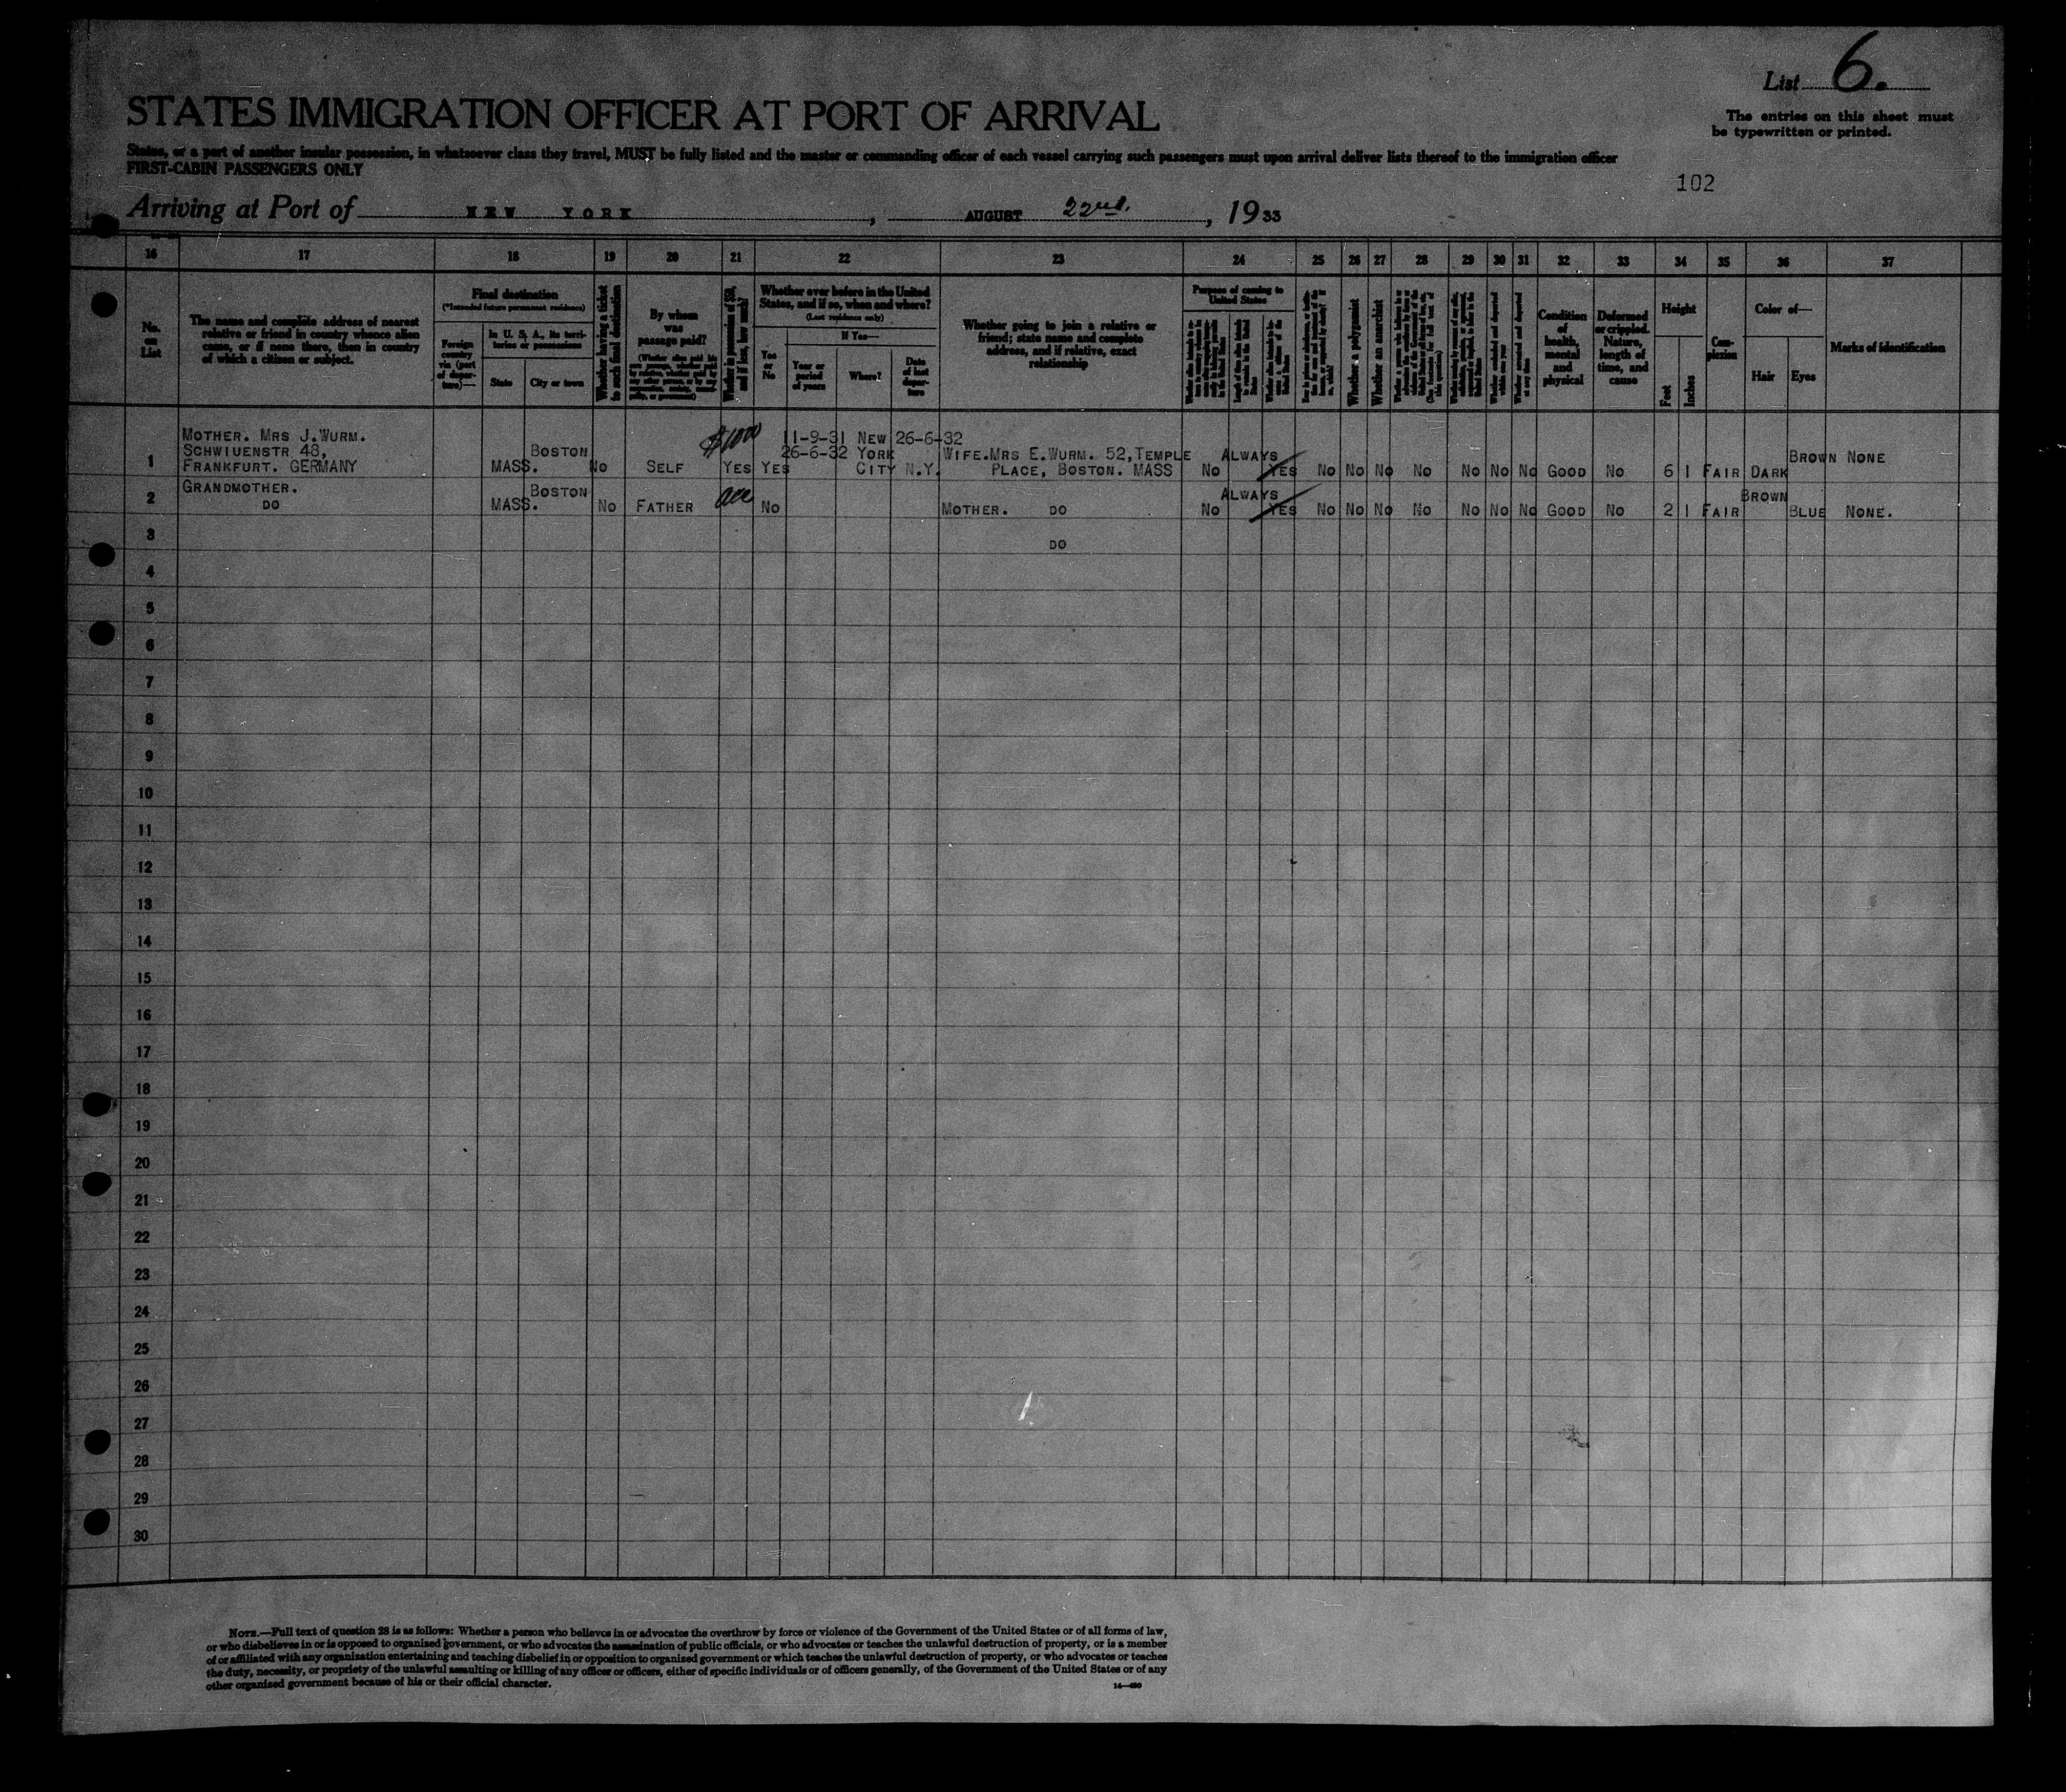 List 6.
The entries on this sheet must
be typewritten or printed.
STATES IMMIGRATION OFFICER AT PORT OF ARRIVAL
States, or a part of another insular possession, in whatsoever class they travel, MUST be fully listed and the master or commanding officer of each vessel carrying such passengers must upon arrival deliver lists thereof to the immigration officer
FIRST-CABIN PASSENGERS ONLY
102
Arriving at Port of NEW YORK, AUGUST 22nd, 1933
16 17 18 19 20 21 22 23 24 25 26 27 28 29 30 31 32 33 34 35 36 37
No. on List
The name and complete address of nearest
relative or friend in country whence alien
came, or if none there, then in country
of which a citizen or subject.
Final destination
(*Intended future permanent residence)
Foreign country via (port of departure)—
In U. S. A., its territories or possessions
State
City or town
Whether having a ticket to such final destination
By whom was passage paid?
Whether in possession of $50, and if less, how much?
Whether ever before in the United
States, and if so, when and where?
(Last residence only)
Yes or No
If Yes—
Year or period of years
Where?
Date of last departure
Whether going to join a relative or
friend; state name and complete
address, and if relative, exact
relationship
Purpose of coming to
United States
Whether a polygamist
Whether an anarchist
Condition of health, mental and physical
Deformed or crippled. Nature, length of time, and cause
Height
Feet
Inches
Complexion
Color of—
Hair
Eyes
Marks of identification
1
MOTHER. MRS J.WURM.
FRANKFURT. GERMANY
MASS. BOSTON No SELF $1000 YES YES
11-9-31 NEW 26-6-32
26-6-32 YORK
CITY N.Y.
WIFE.MRS E.WURM. 52,TEMPLE
PLACE, BOSTON. MASS
No ALWAYS YES No No No No No No No GOOD No 6 1 FAIR DARK BROWN NONE
2
GRANDMOTHER.
DO
MASS. BOSTON No FATHER No
MOTHER. DO
No ALWAYS YES No No No No No No No GOOD No 2 1 FAIR BROWN BLUE NONE.
3
DO
4
5
6
7
8
9
10
11
12
13
14
15
16
17
18
19
20
21
22
23
24
25
26
27
28
29
30
NOTE.—Full text of question 28 is as follows: Whether a person who believes in or advocates the overthrow by force or violence of the Government of the United States or of all forms of law,
or who disbelieves in or is opposed to organized government, or who advocates the assassination of public officials, or who advocates or teaches the unlawful destruction of property, or is a member
of or affiliated with any organization entertaining and teaching disbelief in or opposition to organized government or which teaches the unlawful destruction of property, or who advocates or teaches
the duty, necessity, or propriety of the unlawful assaulting or killing of any officer or officers, either of specific individuals or of officers generally, of the Government of the United States or of any
other organized government because of his or their official character.